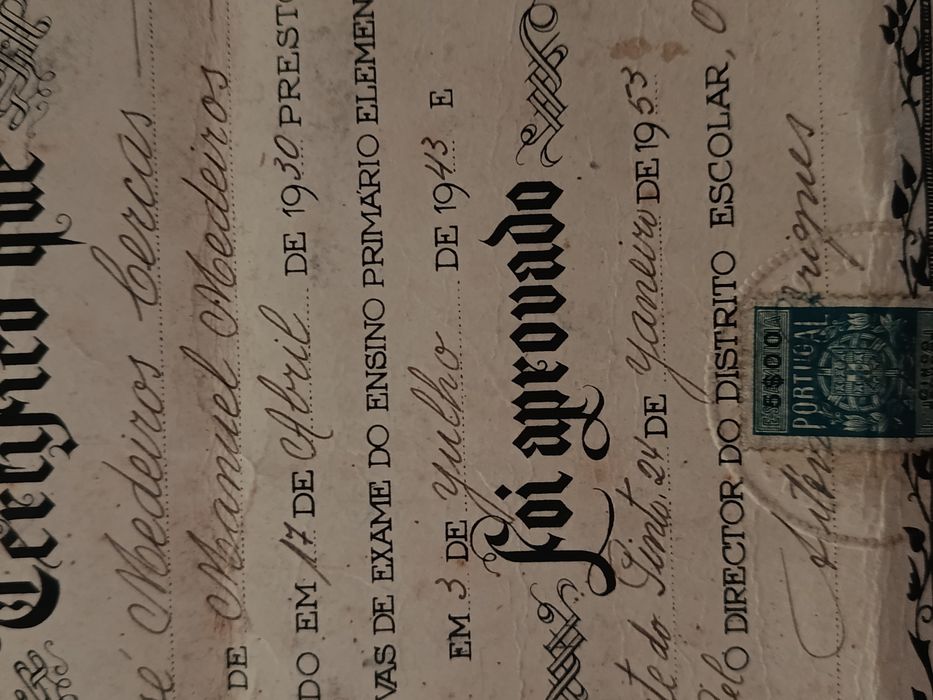 Certifico que
sé Medeiros Cercas
DE Manuel Medeiros
DO EM 17 DE Abril DE 1930 PRESTO
VAS DE EXAME DO ENSINO PRIMÁRIO ELEMEN
EM 3 DE Julho DE 1943 E
Foi aprovado
te do Sinto, 24 DE Janeiro DE 1953
O DIRECTOR DO DISTRITO ESCOLAR,
rigues
5$00
PORTUGAL